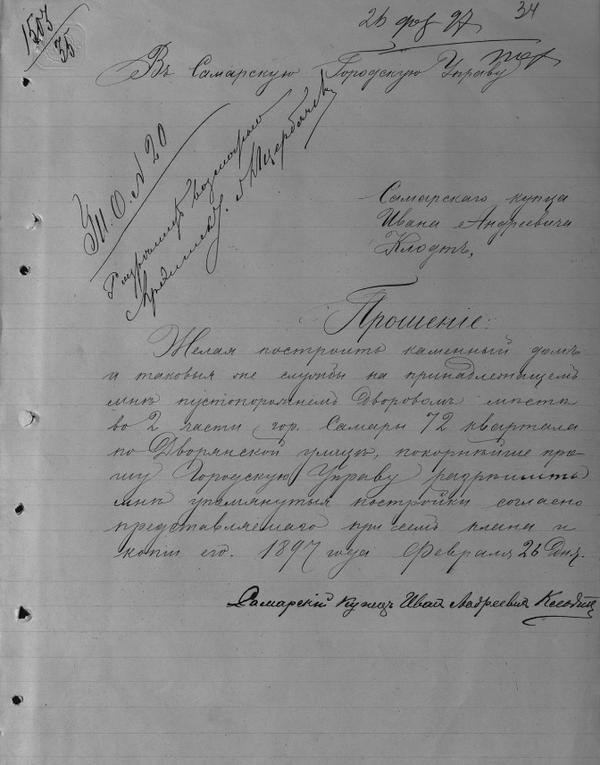 1503
35
26 фев 97
34
Въ Самарскую Городскую Управу
Ст. О. N 20
Разрѣшить
Самарскаго купца
Ивана Андреевича
Клодтъ,
Прошеніе:
Желая построить каменный домъ
и таковыя же службы на принадлежащемъ
мнѣ пустопорожнемъ дворовомъ мѣстѣ
во 2 части гор. Самары 72 квартала
по Дворянской улицѣ, покорнѣйше про-
шу Городскую Управу разрѣшить
мнѣ упомянутыя постройки согласно
представляемаго при семъ плана и
копіи его. 1897 года Февраля 26 дня.
Самарскій Купецъ Иванъ Андреевичъ Клодтъ